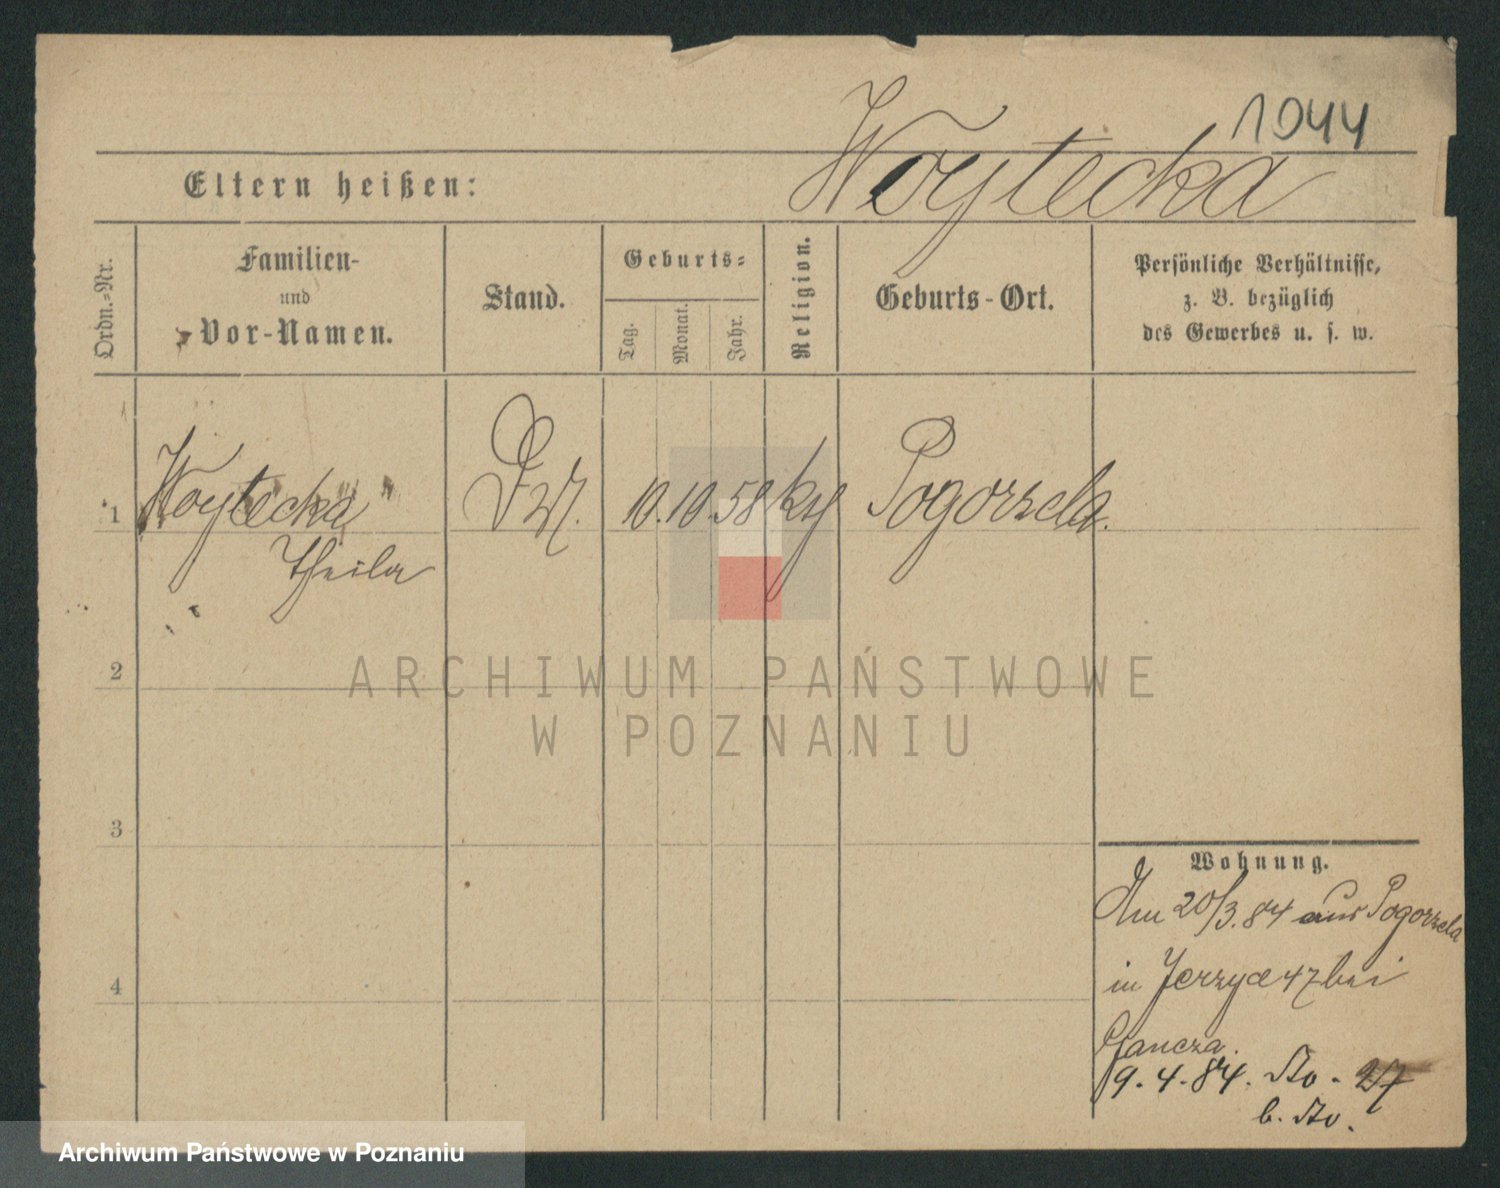 1044
Woytecka
Eltern heißen:
Ordn.-Nr.
Familien-
und
Vor-Namen.
Stand.
Geburts-
Tag.
Monat.
Jahr.
Religion.
Geburts-Ort.
Persönliche Verhältnisse,
z. B. bezüglich
des Gewerbes u. s. w.
1 Woytecka 10. 10. 58 Pogorzela.
Theila
2
ARCHIWUM PAŃSTWOWE
W POZNANIU
3
Wohnung.
Am 20/3. 84 aus Pogorzela
4
in Jerzyce 47 bei
9. 4. 84. 27
Archiwum Państwowe w Poznaniu